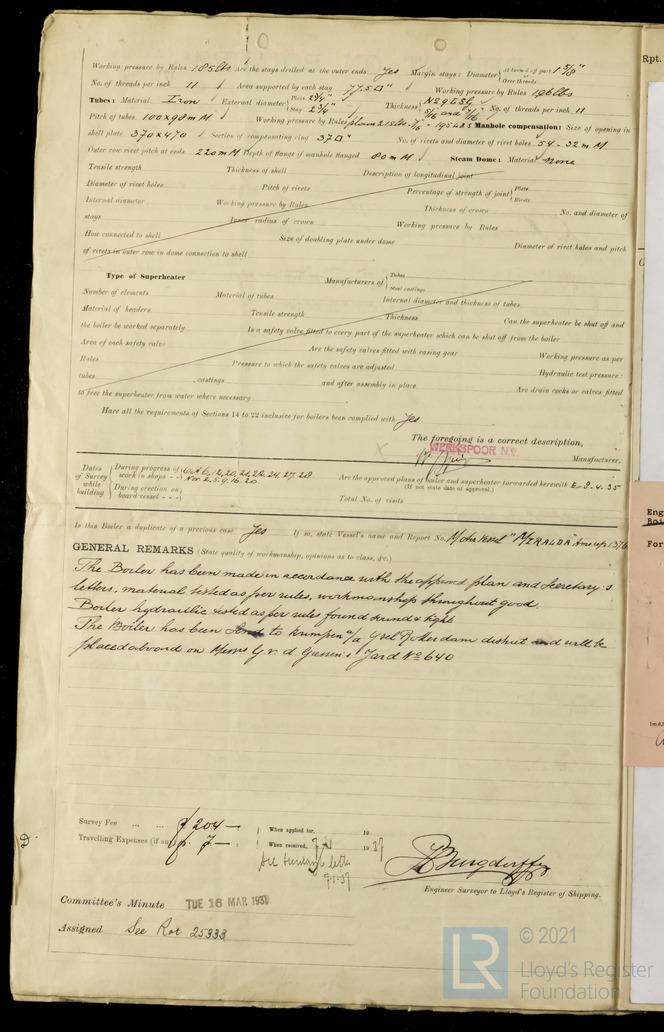 Working pressure by Rules 185 lbs Are the stays drilled at the outer ends Yes Margin stays: Diameter { At turned off part, 1 5/8" Over threads
No. of threads per inch 11 Area supported by each stay 77.5 □" Working pressure by Rules 196 lbs
Tubes: Material Iron External diameter { Plain 2 3/4" Stay 2 3/4" Thickness { No 9 LSG 5/16 and 7/16 No. of threads per inch 11
Pitch of tubes 100 x 98 m M Working pressure by Rules plain 215 lbs Manhole compensation: Size of opening in
shell plate 370 x 470 Section of compensating ring 37 □" No. of rivets and diameter of rivet holes 54 - 32 m M
Outer row rivet pitch at ends 220 m M Depth of flange if manhole flanged 80 m M Steam Dome: Material none
Tensile strength Thickness of shell Description of longitudinal joint
Diameter of rivet holes Pitch of rivets Percentage of strength of joint { Plate Rivets
Internal diameter Working pressure by Rules Thickness of crown No. and diameter of
stays Inner radius of crown Working pressure by Rules
How connected to shell Size of doubling plate under dome Diameter of rivet holes and pitch
of rivets in outer row in dome connection to shell
Type of Superheater Manufacturers of { Tubes Steel castings
Number of elements Material of tubes Internal diameter and thickness of tubes
Material of headers Tensile strength Thickness Can the superheater be shut off and
the boiler be worked separately Is a safety valve fitted to every part of the superheater which can be shut off from the boiler
Area of each safety valve Are the safety valves fitted with easing gear Working pressure as per
Rules Pressure to which the safety valves are adjusted Hydraulic test pressure:
tubes castings and after assembly in place Are drain cocks or valves fitted
to free the superheater from water where necessary
Have all the requirements of Sections 14 to 22 inclusive for boilers been complied with Yes
The foregoing is a correct description,
WERKSPOOR N.V.
Manufacturer.
Dates of Survey while building { During progress of work in shops - - 12, 20, 21, 22, 24, 27, 28 Nov. 2. 5. 9. 16. 20.
During erection on board vessel - - -
Are the approved plans of boiler and superheater forwarded herewith E-8.4.35
(If not state date of approval.)
Total No. of visits
Is this Boiler a duplicate of a previous case Yes If so, state Vessel's name and Report No. Motor vessel "MIRALDA"
GENERAL REMARKS (State quality of workmanship, opinions as to class, &c.)
The Boiler has been made in accordance with the approved plan and Secretary's
letters, material tested as per rules, workmanship throughout good.
Boiler hydraulic tested as per rules found sound & tight
The Boiler has been to Krimpen a/d Ysel Rotterdam district and will be
placed aboard on Messrs G. v. d. Yard No 640
Survey Fee ... ... f 204 — When applied for, 19
Travelling Expenses (if any) f. 7 — When received, 19 37
letter
Engineer Surveyor to Lloyd's Register of Shipping.
Committee's Minute TUE 16 MAR 1937
Assigned See Rot 25333
Rpt.
Eng
Boi
For
© 2021
LR
Lloyd's Register
Foundation